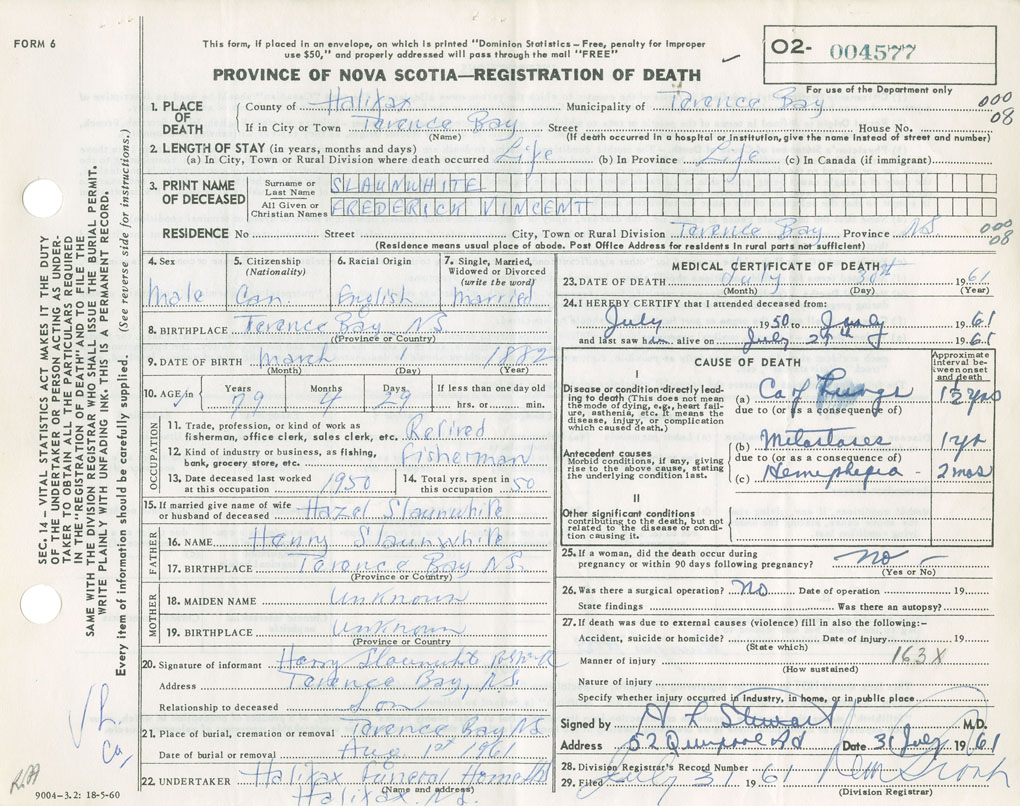 FORM 6
This form, if placed in an envelope, on which is printed "Dominion Statistics – Free, penalty for improper
use $50," and properly addressed will pass through the mail "FREE"
PROVINCE OF NOVA SCOTIA—REGISTRATION OF DEATH
02- 004577
For use of the Department only
SEC. 14 – VITAL STATISTICS ACT MAKES IT THE DUTY
OF THE UNDERTAKER OR PERSON ACTING AS UNDER-
TAKER TO OBTAIN ALL THE PARTICULARS REQUIRED
IN THE "REGISTRATION OF DEATH" AND TO FILE THE
SAME WITH THE DIVISION REGISTRAR WHO SHALL ISSUE THE BURIAL PERMIT.
WRITE PLAINLY WITH UNFADING INK. THIS IS A PERMANENT RECORD.
Every item of information should be carefully supplied. (See reverse side for instructions.)
1. PLACE OF DEATH
County of Halifax Municipality of Terence Bay 000 08
If in City or Town Terence Bay Street House No.
(Name) (If death occurred in a hospital or institution, give the name instead of street and number)
2. LENGTH OF STAY (in years, months and days)
(a) In City, Town or Rural Division where death occurred Life (b) In Province Life (c) In Canada (if immigrant)
3. PRINT NAME OF DECEASED
Surname or Last Name SLAUNWHITE
All Given or Christian Names FREDERICK VINCENT
RESIDENCE No Street City, Town or Rural Division Terence Bay Province NS 000 08
(Residence means usual place of abode. Post Office Address for residents in rural parts not sufficient)
4. Sex Male
5. Citizenship (Nationality) Can.
6. Racial Origin English
7. Single, Married, Widowed or Divorced (write the word) Married
8. BIRTHPLACE Terence Bay NS
(Province or Country)
9. DATE OF BIRTH March 1 1882
(Month) (Day) (Year)
10. AGE in Years 79 Months 4 Days 29 If less than one day old hrs. or min.
OCCUPATION
11. Trade, profession, or kind of work as fisherman, office clerk, sales clerk, etc. Retired
12. Kind of industry or business, as fishing, bank, grocery store, etc. fisherman
13. Date deceased last worked at this occupation 1950
14. Total yrs. spent in this occupation 50
15. If married give name of wife or husband of deceased Hazel Slaunwhite
FATHER
16. NAME Henry Slaunwhite
17. BIRTHPLACE Terence Bay NS.
(Province or Country)
MOTHER
18. MAIDEN NAME Unknown
19. BIRTHPLACE Unknown
(Province or Country
20. Signature of informant Harry Slaunwhite
Address Terence Bay, N.S.
Relationship to deceased Son
21. Place of burial, cremation or removal Terence Bay NS
Date of burial or removal Aug 1st 1961
22. UNDERTAKER Halifax Funeral Home
(Name and address)
Halifax. N.S.
9004-3.2: 18-5-60
MEDICAL CERTIFICATE OF DEATH
23. DATE OF DEATH July 30th 1961
(Month) (Day) (Year)
24. I HEREBY CERTIFY that I attended deceased from:
July 1950 to July 1961
and last saw him alive on July 29th 1961
CAUSE OF DEATH
Approximate interval between onset and death
I
Disease or condition directly leading to death (This does not mean the mode of dying, e.g., heart failure, asthenia, etc. It means the disease, injury, or complication which caused death.)
(a) Ca of Lungs
due to (or as a consequence of)
Antecedent causes
Morbid conditions, if any, giving rise to the above cause, stating the underlying condition last.
(b) Metastases 1 yr
due to (or as a consequence of)
(c) Hemiplegia - 2 mos
II
Other significant conditions
contributing to the death, but not related to the disease or condition causing it.
25. If a woman, did the death occur during pregnancy or within 90 days following pregnancy? No
(Yes or No)
26. Was there a surgical operation? No Date of operation 19
State findings Was there an autopsy?
27. If death was due to external causes (violence) fill in also the following:-
Accident, suicide or homicide? Date of injury 19
(State which)
Manner of injury 163X
(How sustained)
Nature of injury
Specify whether injury occurred in industry, in home, or in public place
Signed by H L Stewart M.D.
Address 52 Quinpool Rd Date 31 July 1961
28. Division Registrar's Record Number
29. Filed July 31 1961
(Division Registrar)